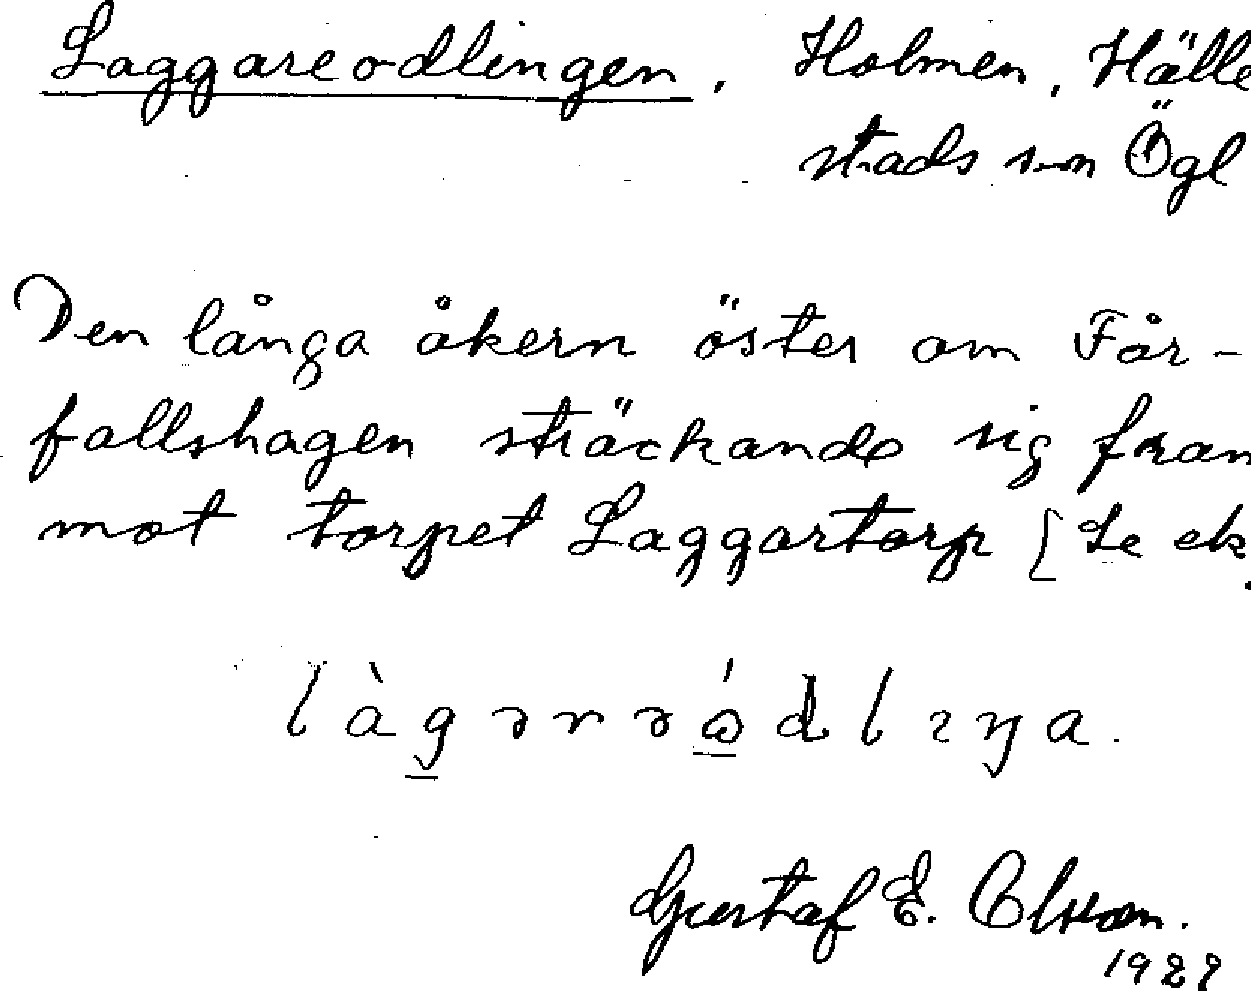 Laggareodlingen, Holmen, Hälle
stads sn Ögl
Den långa åkern öster om Får-
fallshagen sträckande sig fram
mot torpet Laggartorp [Se ek.
làgərəódlɪŋa.
Gustaf E. Olsson.
1927